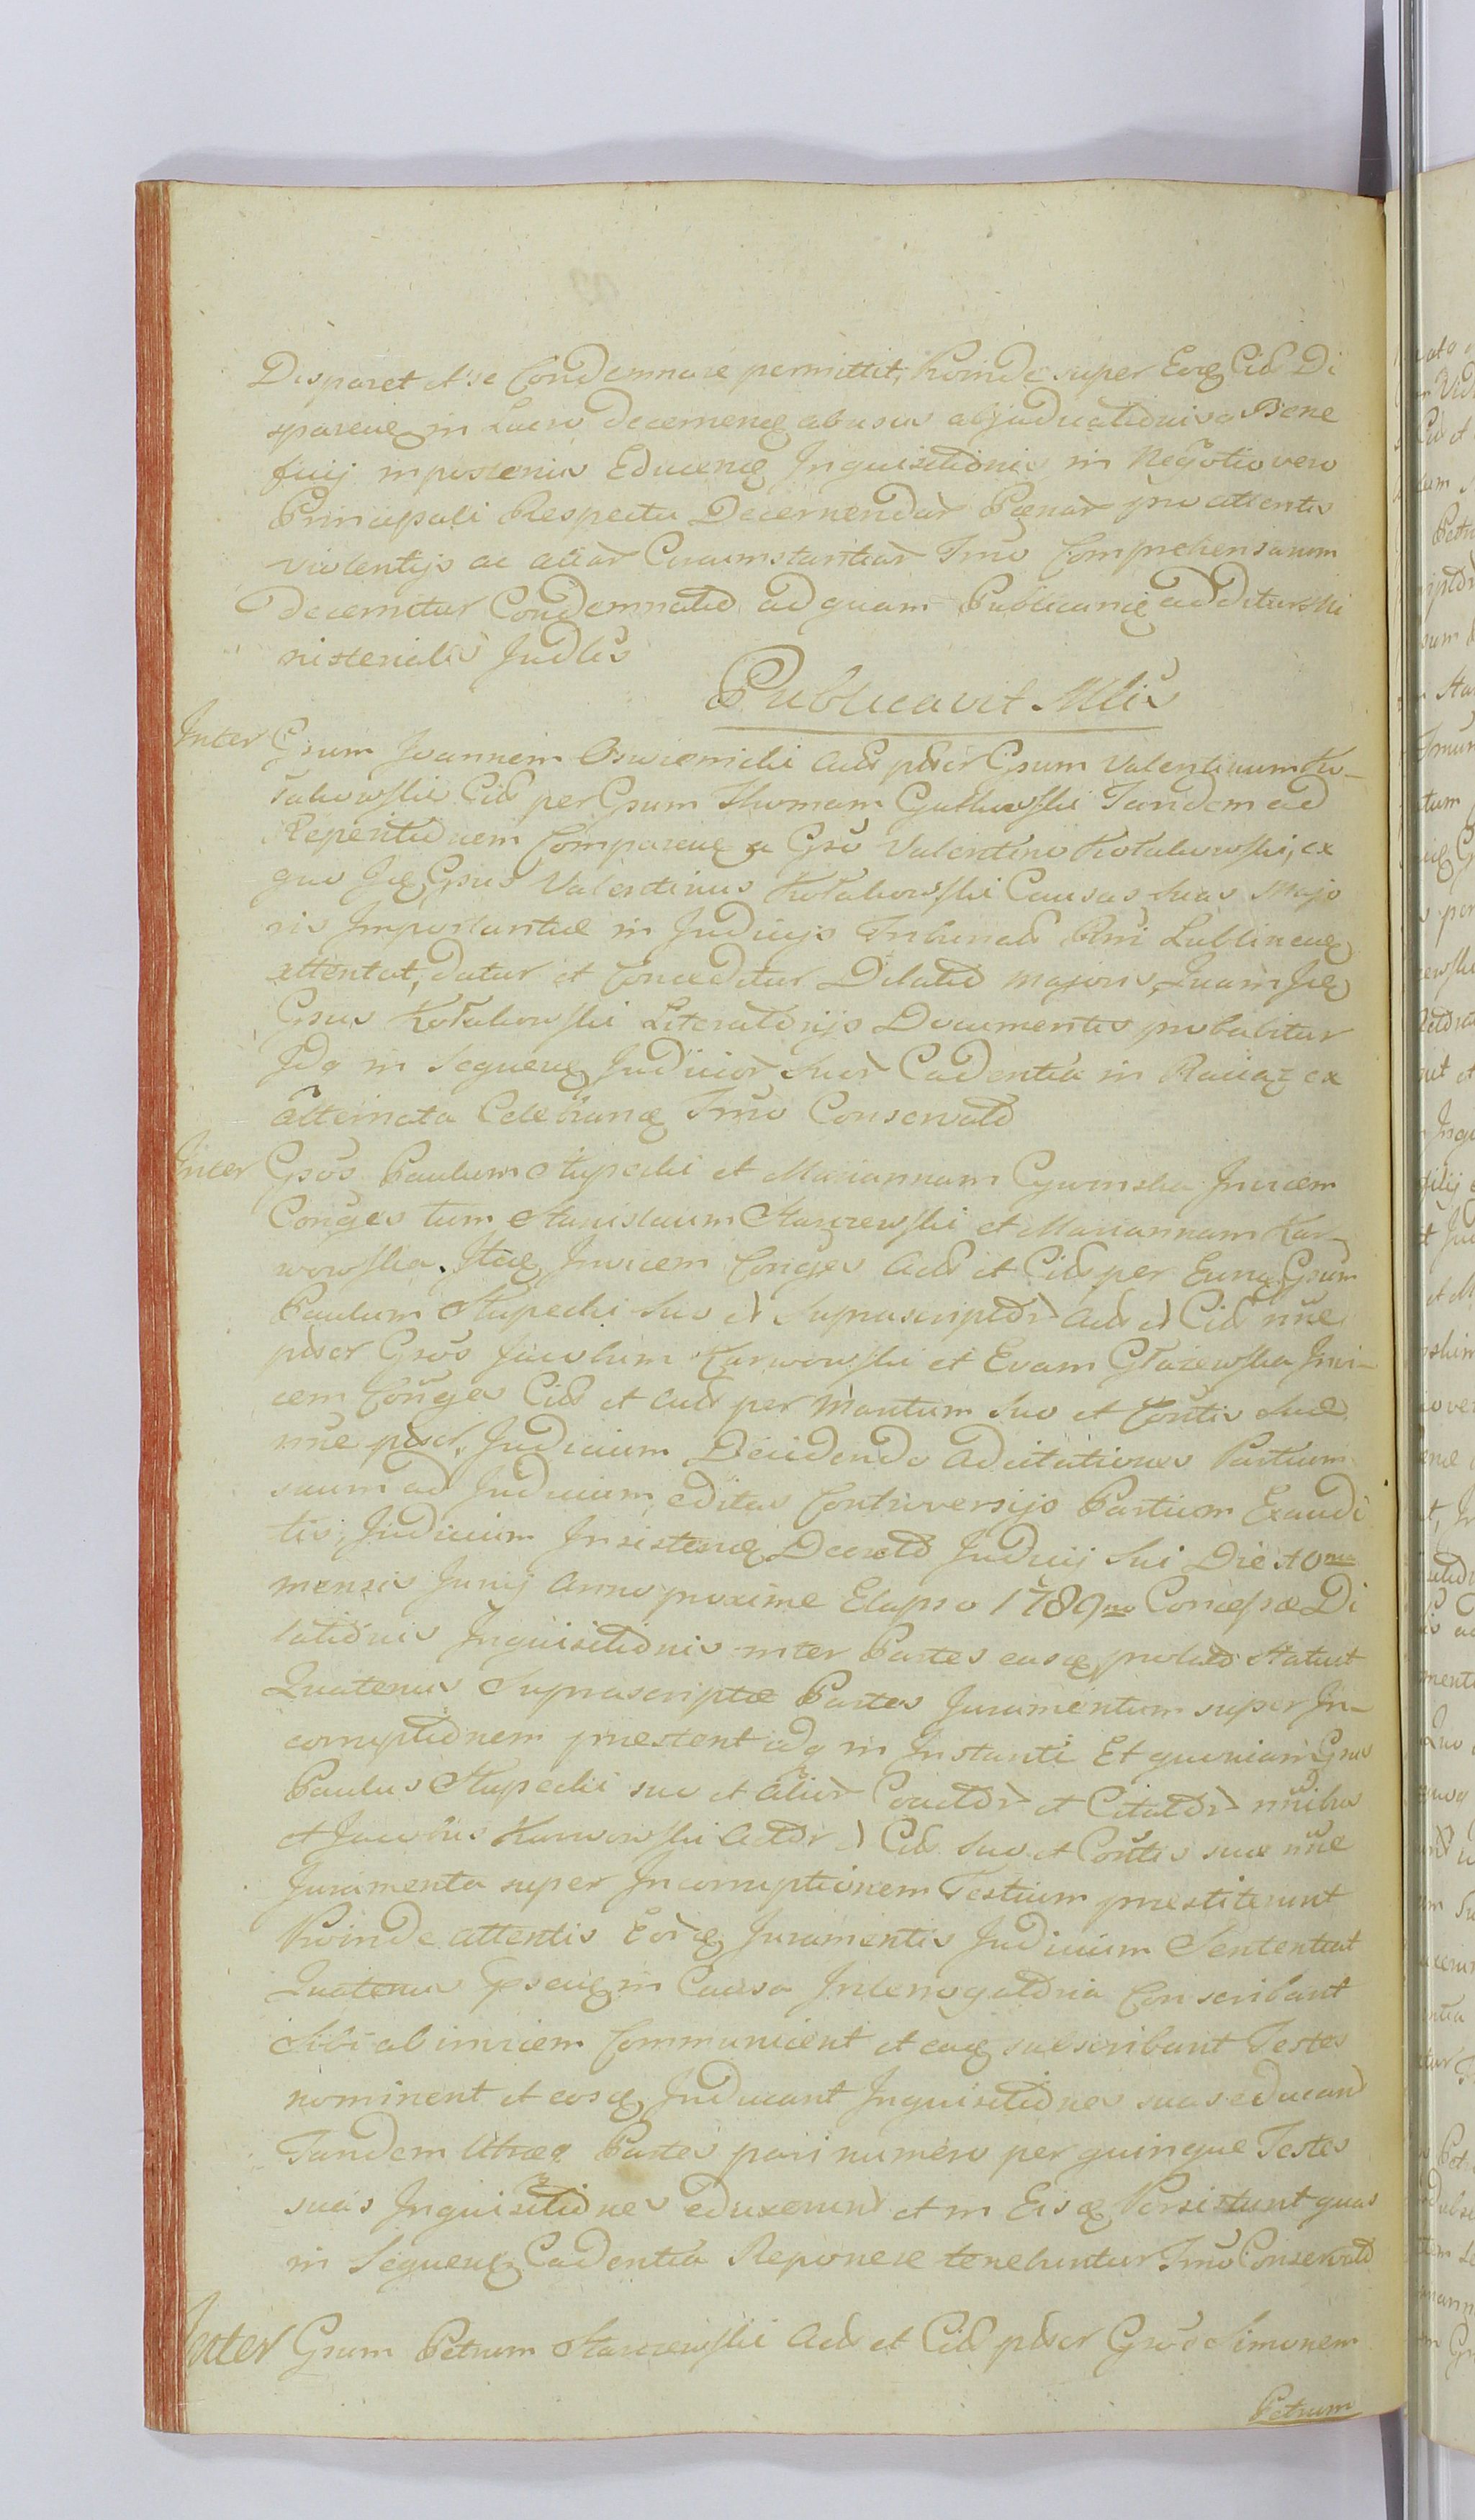 Disparet et se Condemnare permittit, Proinde super Eoq Cit Di
spareng in Lucro decerneng abusus abjudicationis a Bene
ficij in posterius Educeng Inquisitionis in Negotio vero
Principali Respectu Decernendar Pænar pro attentis
violentijs ac aliar Circumstantiar Tmo Comprehensarum
decernitur Condemnatio ad quam Publicang additur Mi
nisterialis Judlis
Publicavit Mlis
Inter Gsum Joannem Oswiemski Act pter Gsum Valentinum Ko-
łakowski Cit per Gsum Thomam Gutkowski Tandem ad
Repentionem Compareng a Gso Valentino Kołakowski, ex
quo Jq Gsus Valentinus Kołakowski Causas suas Majo
ris Importantiæ in Judicijs Tribunal Rni Lublineng
attentat, datur et Conceditur Dilatio majoris, Quam Jq
Gsus Kołakowski Literatorijs Documentis probabitur
Idq in Sequeng Judicior suor Cadentia in Raciąz ex
alternata Celebrang Tmo Conservato
Inter Gsos Paulum Słupecki et Mariannam Cywinska Invicem
Conges tum Stanislaum Starzewski et Mariannam Kar-
wowska Itaq Invicem Conges Act et Cit per Eunq Gsum
Paulum Słupecki suo et Suprascriptor Act et Cit nne
pter Gsos Jacobum Karwowski et Evam Głazewska Invi-
cem Conges Cit et Act per Maritum suo et Contis suæ
nne pter. Judicium Decidendo Adcitationes Partium
suum ad Judicium editas Controversijs Partium Exaudi
tis, Judicium Insisteng Decreto Judicij Sui Die 10ma
mensis Junij Anno proxime Elapso 1789no Concessæ Di
lationis Inquisitionis inter Partes easq prolato Statuit
Quatenus Suprascriptæ Partes Juramentum super In-
corruptionem præstent idq in Instanti Et quoniam Gsus
Paulus Słupecki suo et alior Coactor et Citator nnibus
et Jacobus Karwowski Actor et Cit suo et Contis suæ nne
Juramenta super Incorruptionem Testium præstiterunt
Proinde attentis Eorq Juramentis Judicium Sententiat
Quatenus Ipseng in Causa Interrogatoria Conscribant
Sibi ab invicem Communicent et eaq subscribant Testes
nominent et eosq Inducant Inquisitiones suas educant
Tandem Utræq Partes pari numero per quinque Testes
suas Inquisitiones eduxerunt et in Eisq Persistunt quas
in Sequeng Cadentia Reponere tenebuntur Tmo Conservato
Inter Gsum Petrum Starzewski Act et Cit pter Gsos Simonem
Petrum